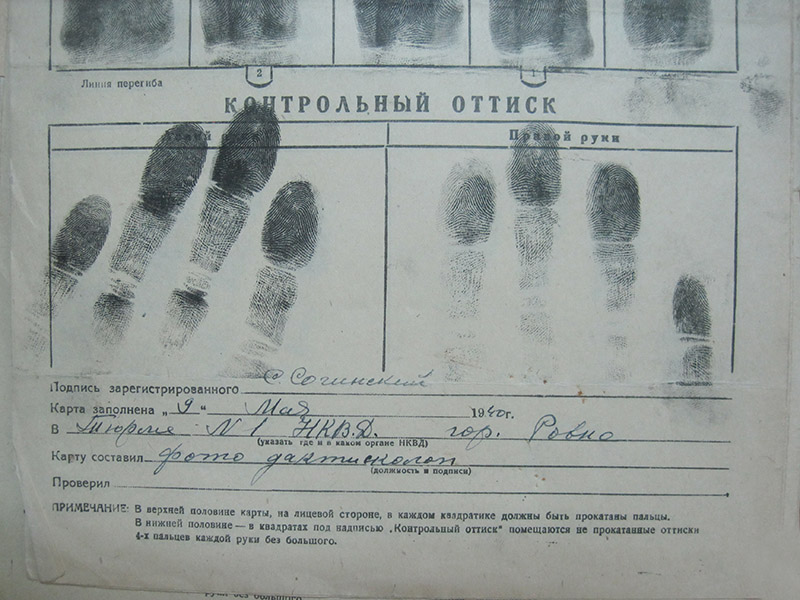 2 1
Линия перегиба
КОНТРОЛЬНЫЙ ОТТИСК
Левой Правой руки
Подпись зарегистрированного С Сочинский
Карта заполнена „ 9 “ Мая 1940 г.
В Тюрьме N 1 НКВД. гор. Ровно
(указать где и в каком органе НКВД)
Карту составил фото дактисколоп
(должность и подписи)
Проверил
ПРИМЕЧАНИЕ: В верхней половине карты, на лицевой стороне, в каждом квадратике должны быть прокатаны пальцы.
В нижней половине — в квадратах под надписью „Контрольный оттиск" помещаются не прокатанные оттиски
4-х пальцев каждой руки без большого.
руки без большого.